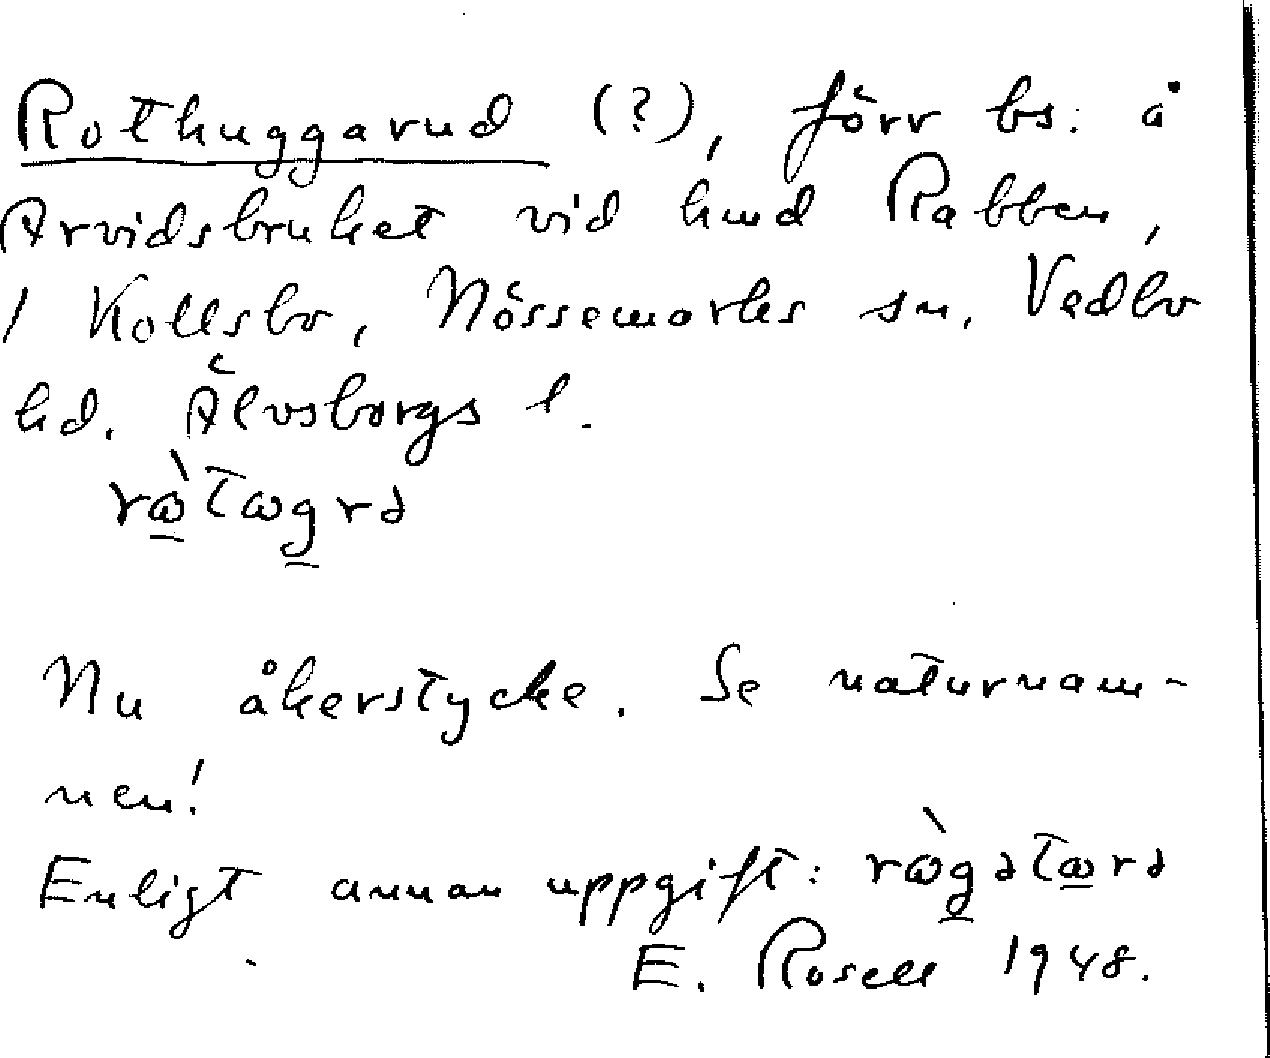 Rothuggarud (?), förr bs. å
Arvidsbruket vid hmd Rabben,
1 Kollsbo, Nössemarks sn, Vedbo
hd. Älvsborgs l.
rὼ̲tωg̲rə
Nu åkerstycke. Se naturnam-
nen!
Enligt annan uppgift: rὼg̲ətω̲rə
E. Rosell 1948.